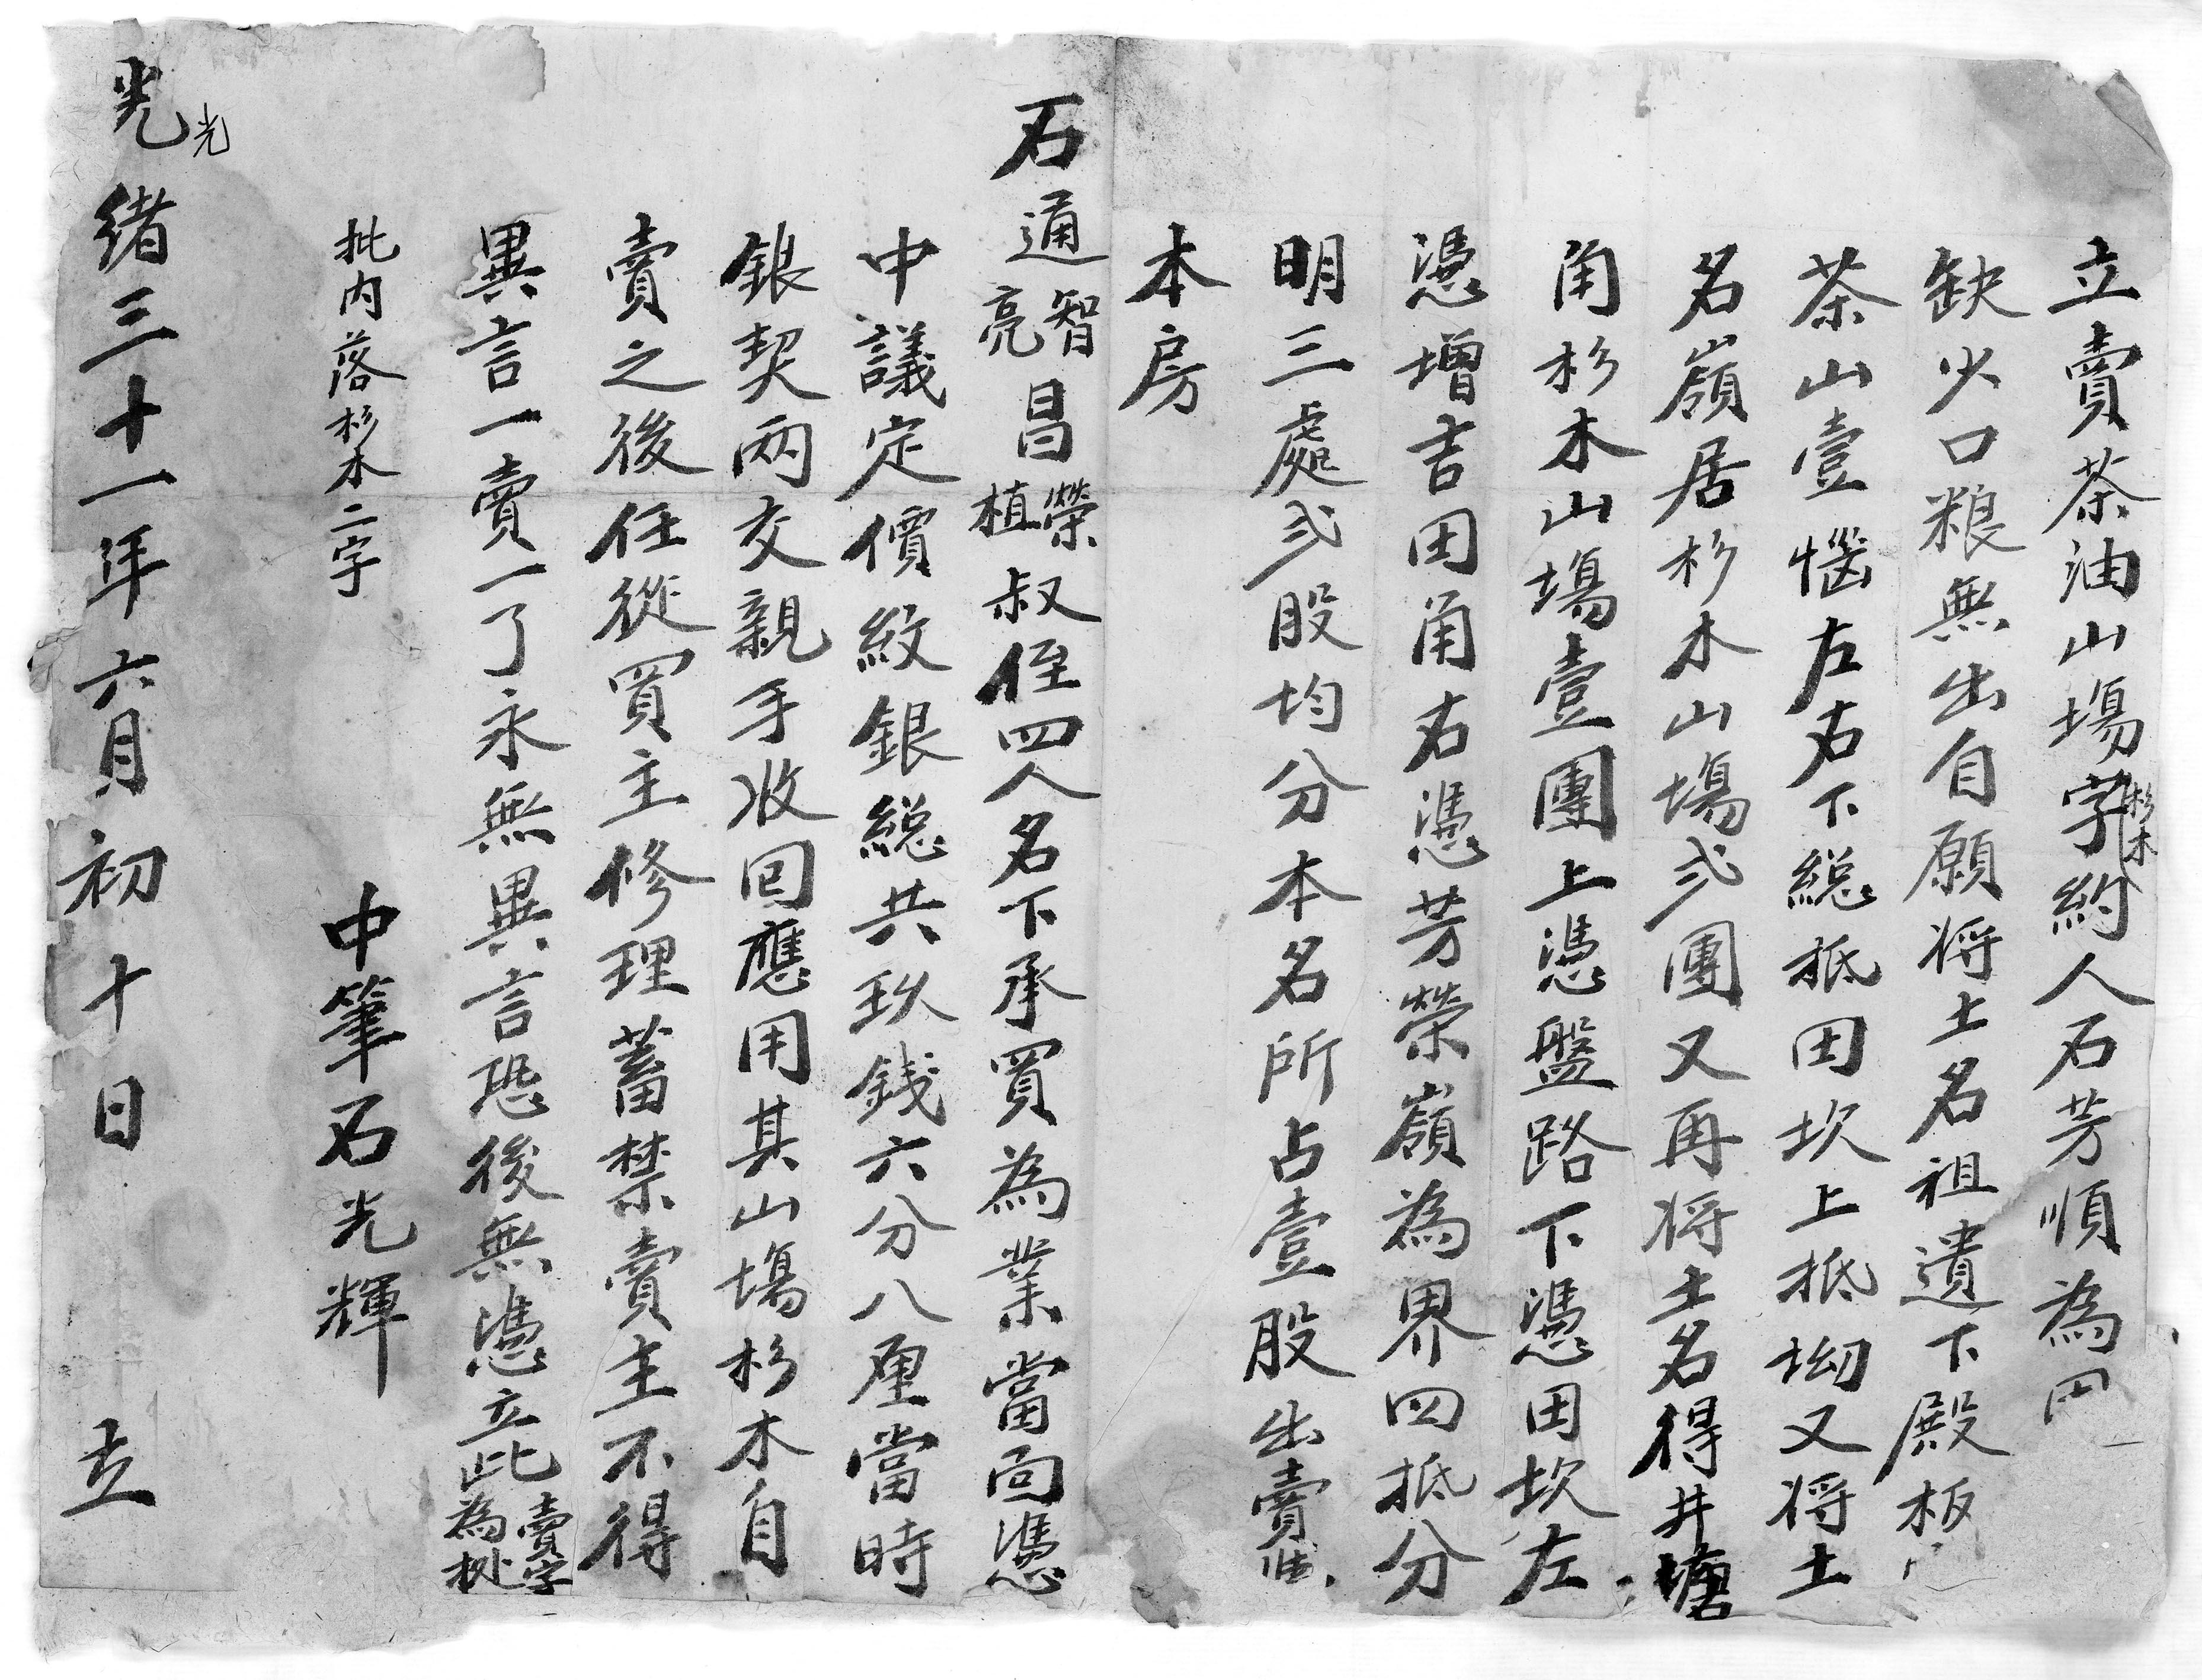 立賣茶油山塲字杉木約人石芳順為因
缺少口粮無出自願将土名祖遺下殿板
茶山壹惱左右下総抵田坎上抵坳又将土
名嶺居杉木山塲弐團又再将土名得井塘
角杉木山塲壹團上憑盤路下憑田坎左
憑增吉田角右憑芳榮嶺為界四抵分
明三處弐股均分本名所占壹股出賣
本房
石通智亮昌榮植叔侄四人名下承買為業當面憑
中議定價紋銀総共玖銭六分八厘當時
銀契兩交親手收回應用其山塲杉木自
賣之後任從買主修理蓄禁賣主不得
異言一賣一了永無異言恐後無憑立此賣字為㨿
批内落杉木二字
中筆石光輝
光
光緒三十一年六月初十日 立